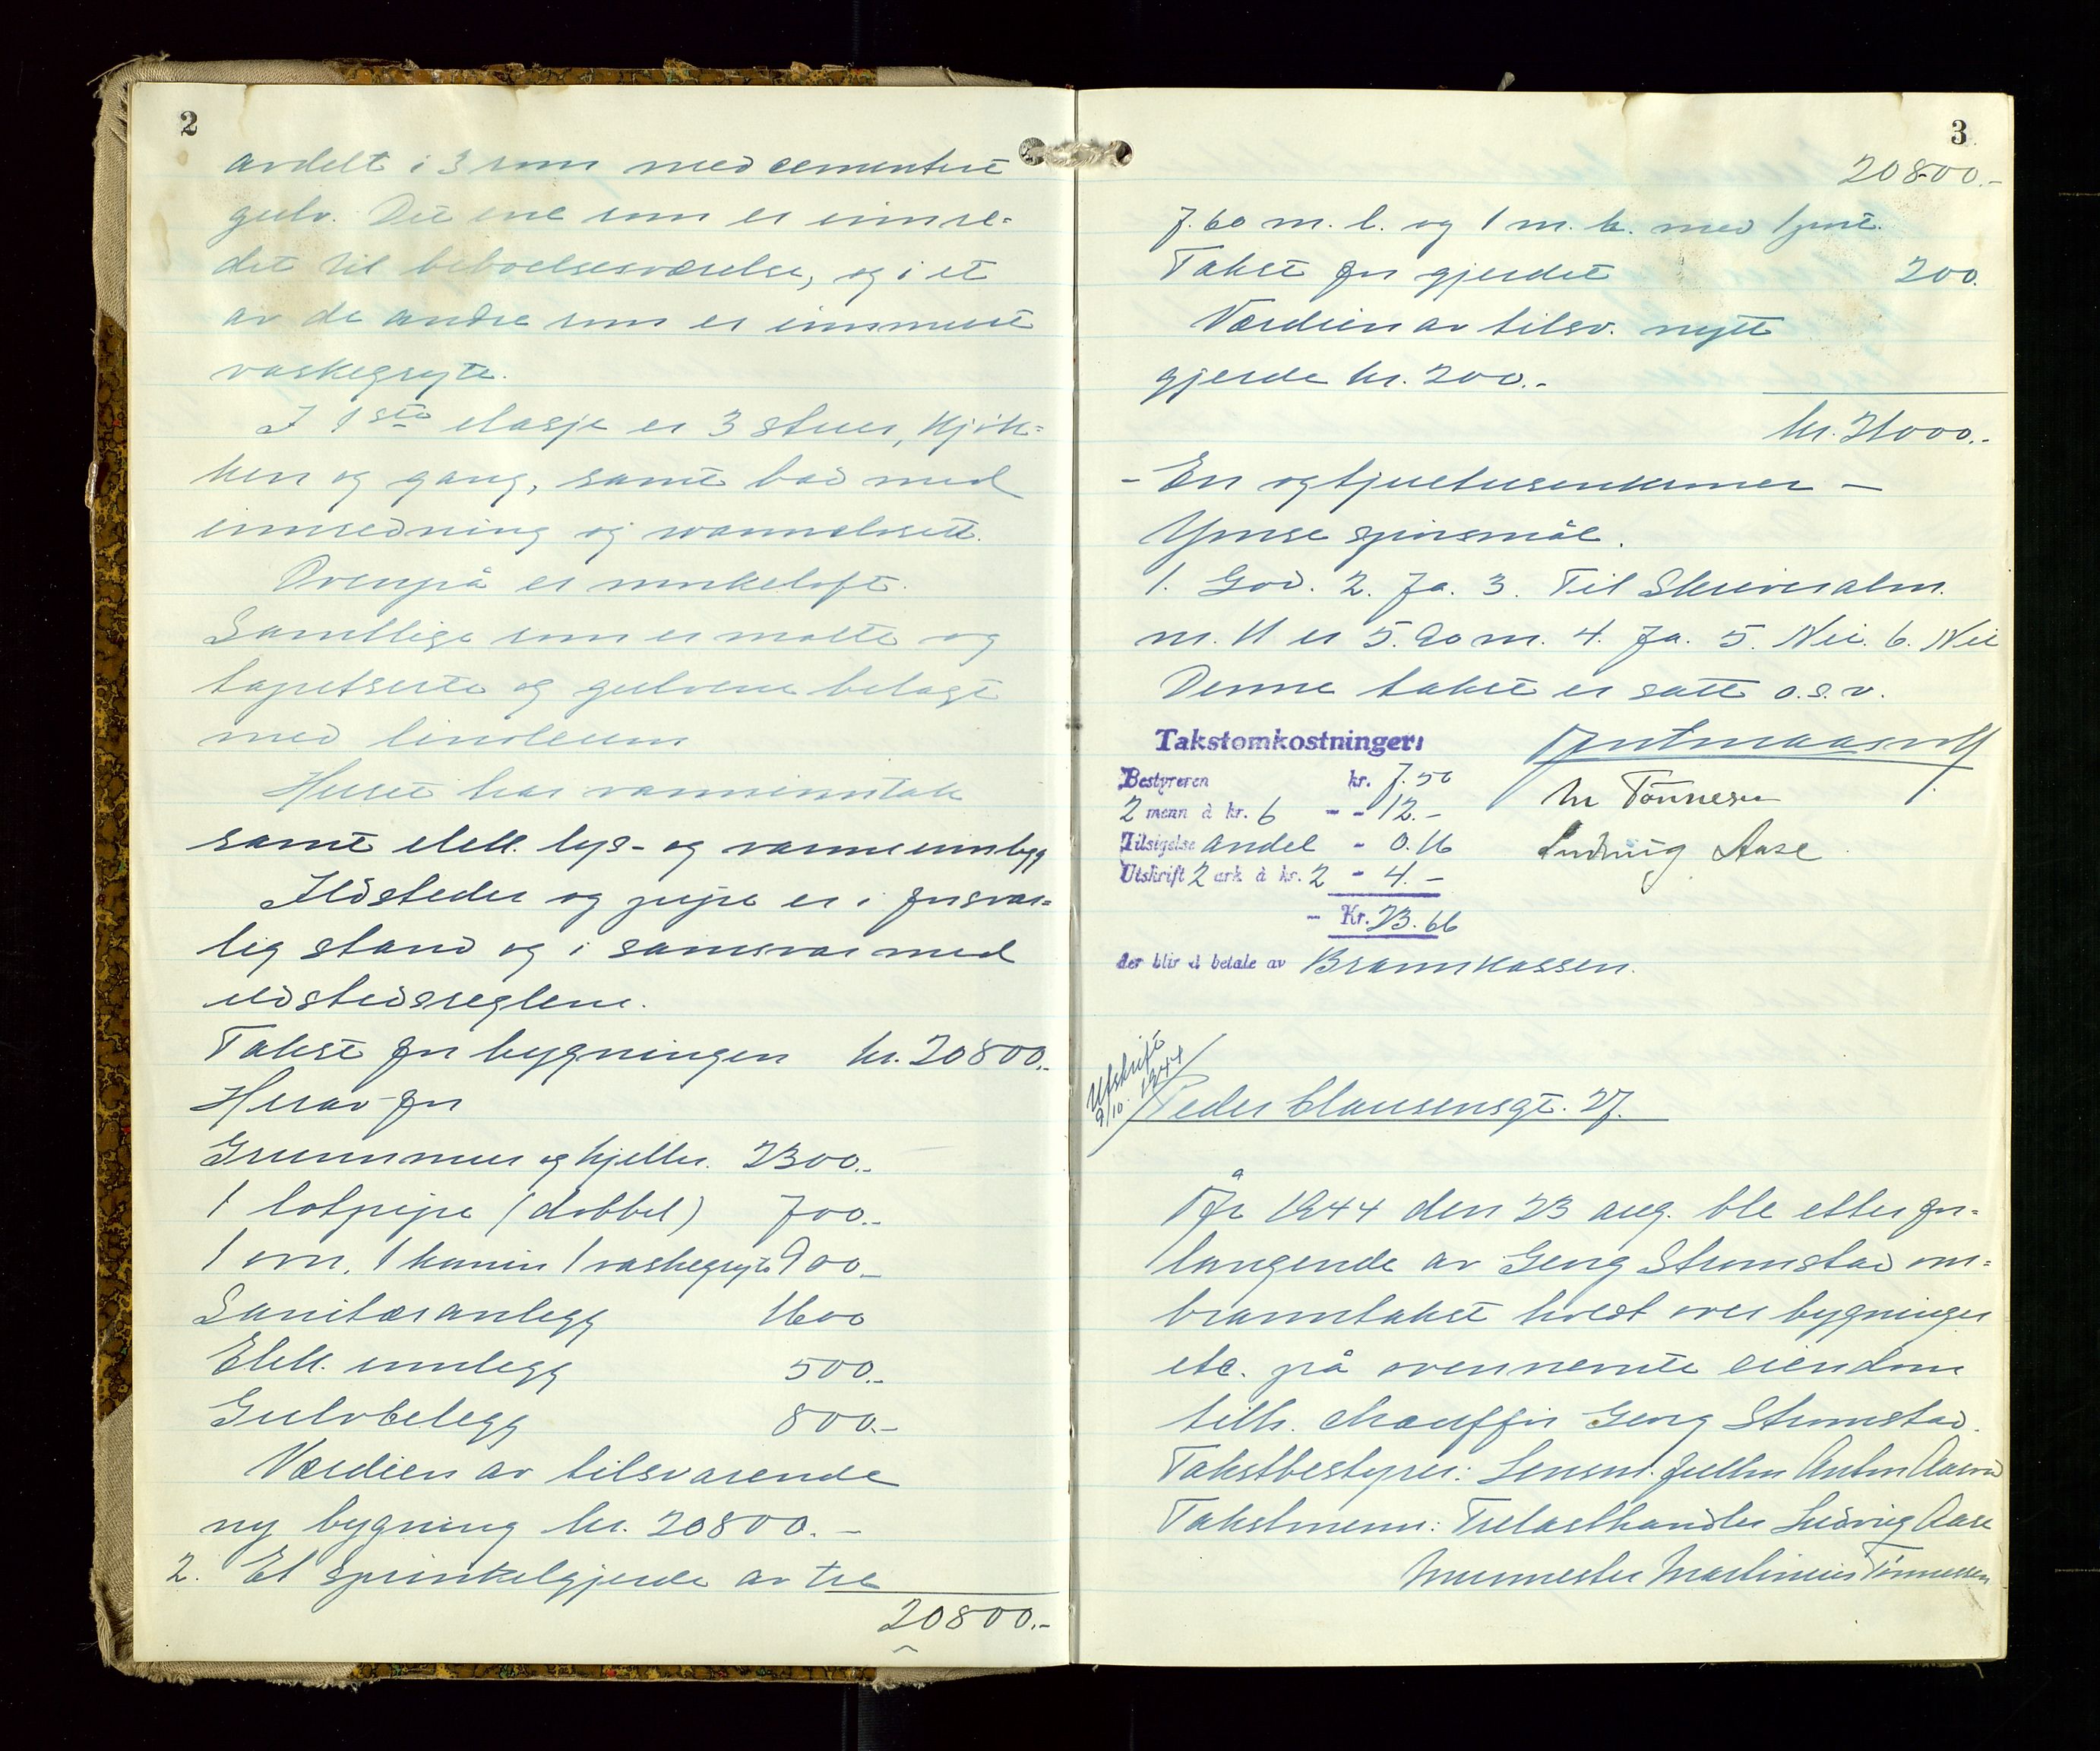 2
avdelt i 3 rom med cementert
gulv. Det ene rom er innre=
det til beboelsesværelse, og i et
av de andre rom er innmuret
vaskegryte.
I 1ste etasje er 3 stuer, kjøk=
ken og gang, samt bad med
innredning og vannklosett.
Ovenpå er mørkeloft.
Samtlige rom er malte og
tapetserte og gulvene belagt
med linoleum
Huset har vanninntak
samt elektr. lys- og varmeinnlegg
Ildsteder og pipe er i forsvar=
lig stand og i samsvar med
ildstedsreglene.
Takst for bygningen kr. 20800.-
Herav for
Grunnmur og kjeller. 2300.-
1 lotpipe (dobbel) 700.-
1 ovn, 1 kamin 1 vaskegryte 900.-
Sanitæranlegg 1600
Elektr. innlegg 500.-
Gulvbelegg 800.-
Verdien av tilsvarende
ny bygning kr. 20800.-
2. Et sprinkelgjerde av tre
20800.-
3
20800.-
7.60 m. l. og 1 m. h. med 1 port.
Takst for gjerdet 200.
Verdien av tilsv. nytt
gjerde kr. 200.-
kr. 21000.-
- En og tjuetusenkroner -
Ymse spørsmål.
1. God. 2. Ja. 3. Til Skriveralm.
nr. 11 er 5.90 m. 4. Ja. 5. Nei. 6. Nei
Denne takst er satt o.s.v.
Takstomkostninger:
Bestyreren kr. 7.50
2 menn à kr. 6 - - 12.-
Tilsigelse andel - 0.16
Utskrift 2 ark à kr. 2 - 4.-
- Kr. 23.66
der blir å betale av Brannkassen.
M Tønnesen
Ludvig Aase
Utskrift
9/10. 1944
Peder Clausensgt. 27.
År 1944 den 23 aug. ble etter for=
langende av Georg Strømstad om=
branntakst holdt over bygninger
etc. på ovennemte eiendom
tilh. chauffør Georg Strømstad.
Takstbestyrer: Lensm. fullm Anton Aasvoll
Takstmenn: Trelasthandler Ludvig Aase
Murmester Martinius Tønnessen